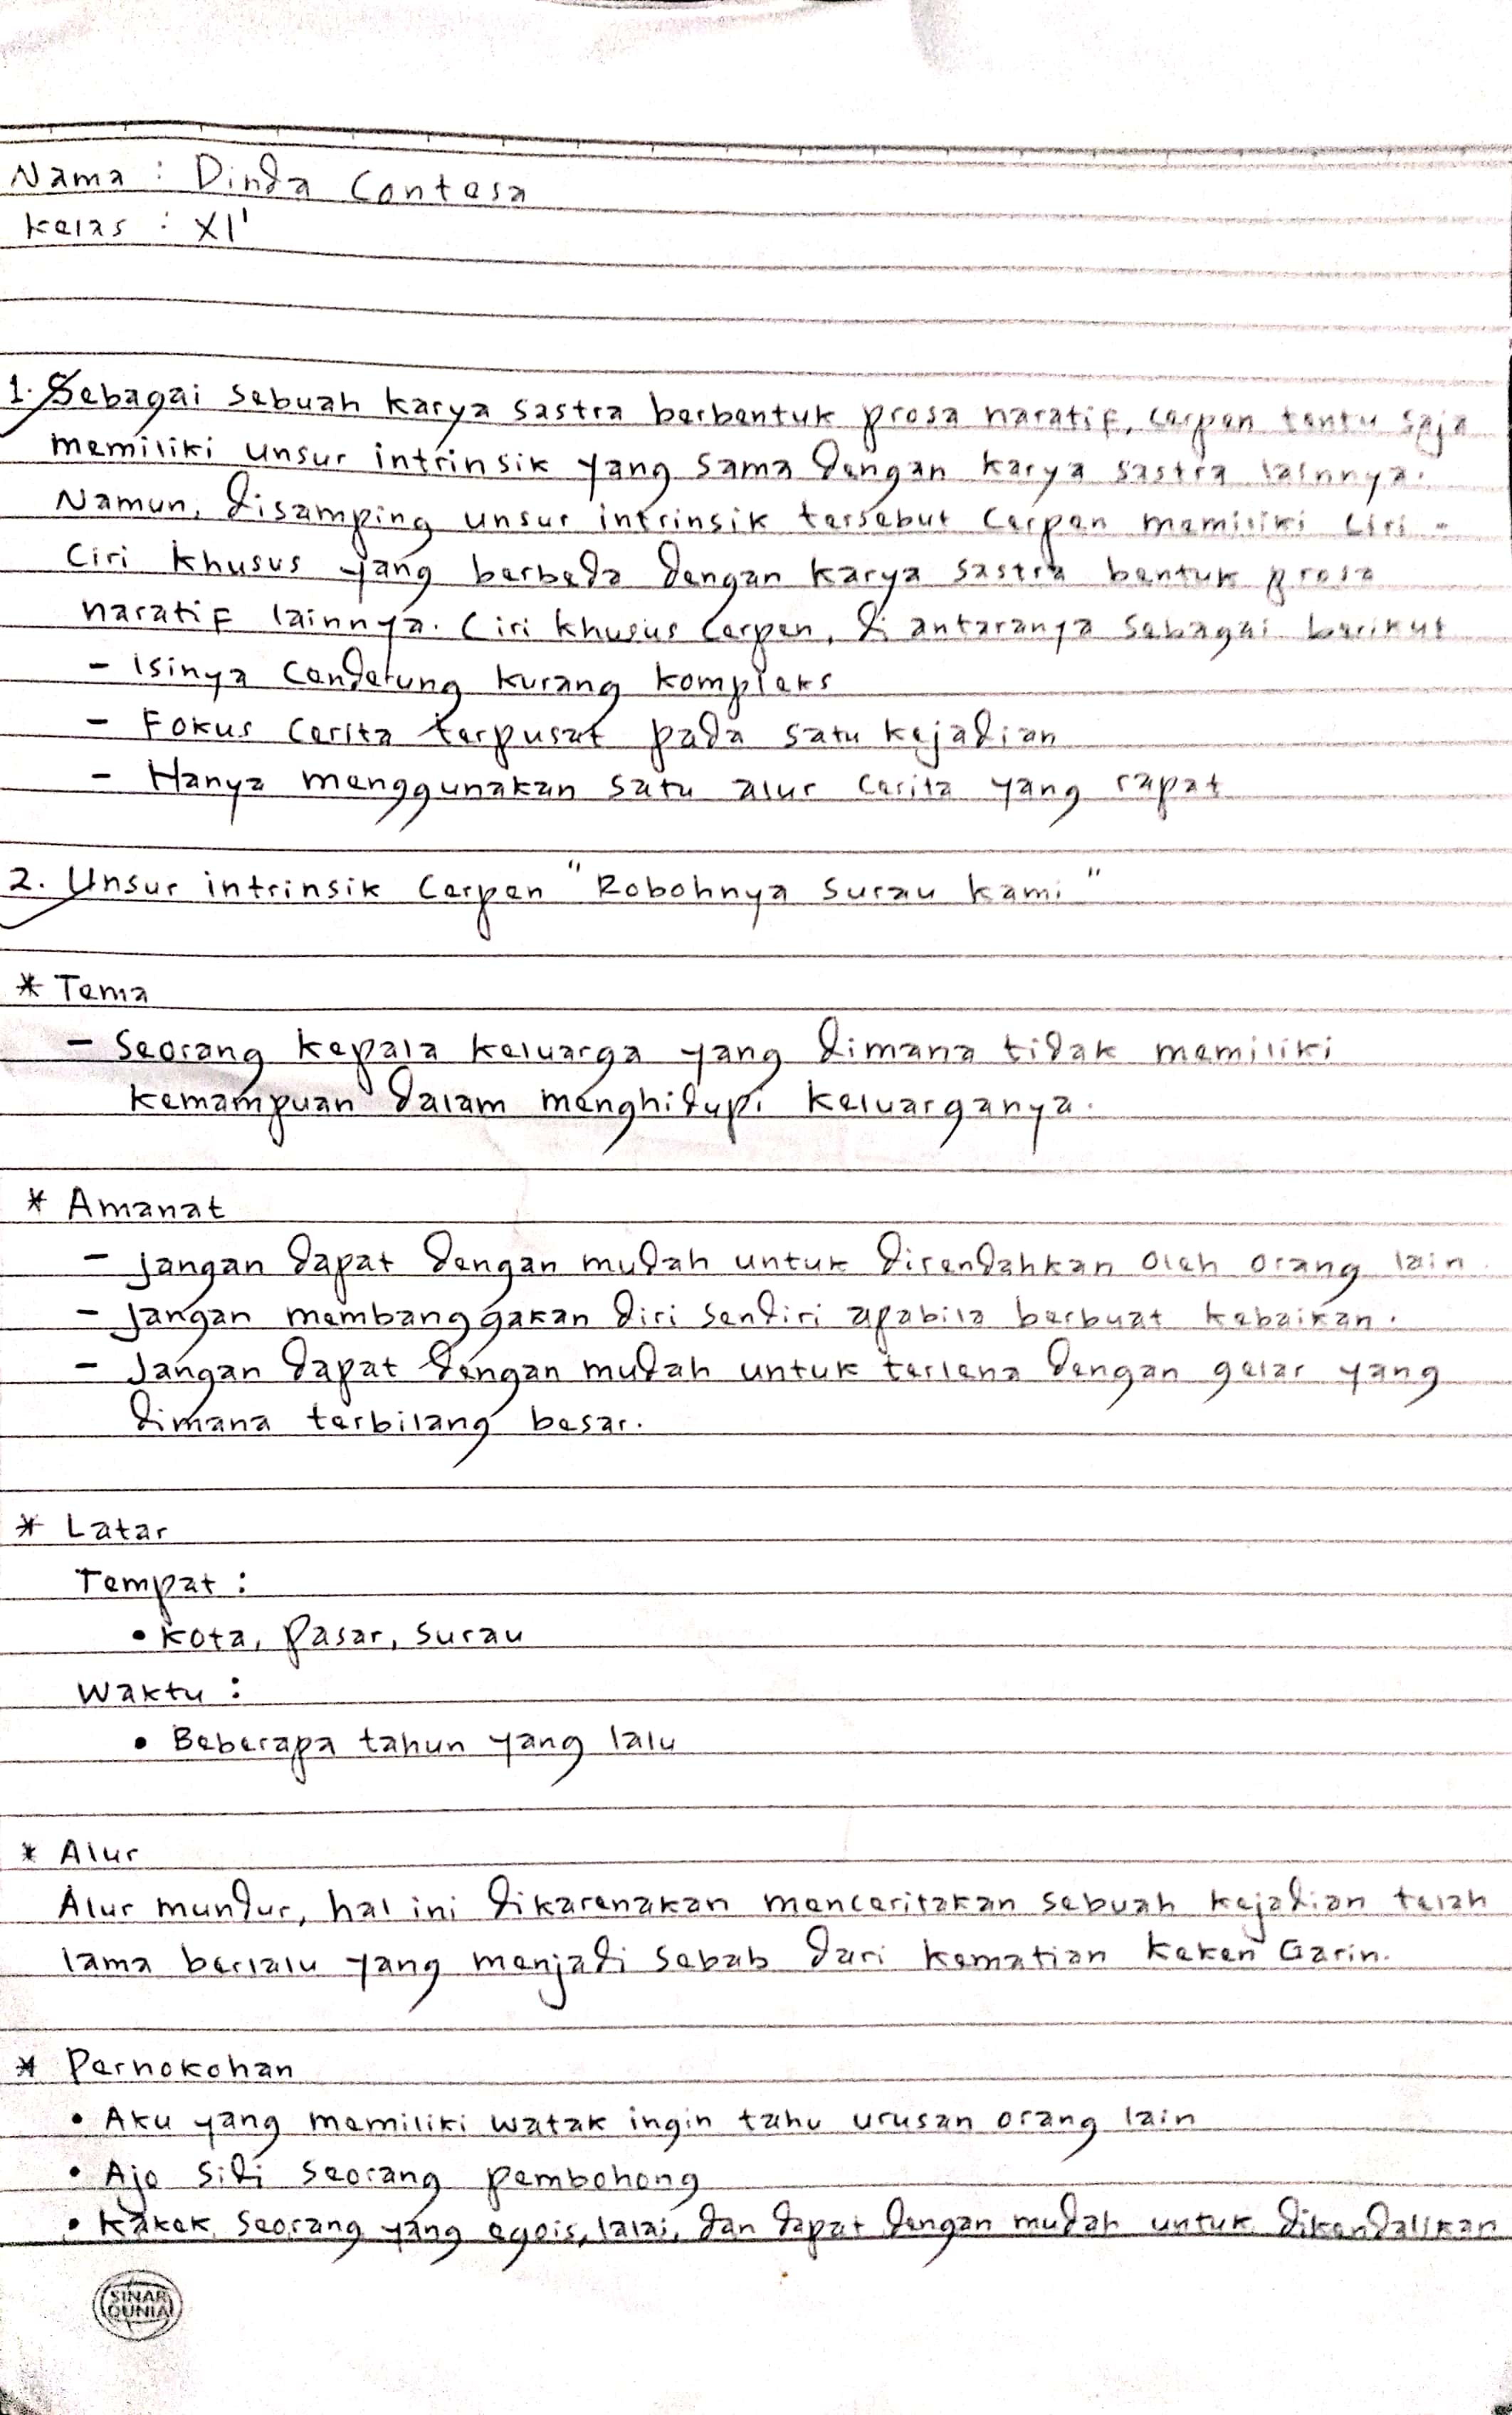 Nama : Dinda Contesa
Kelas : XI'
1. Sebagai sebuah karya sastra berbentuk prosa naratif, cerpen tentu saja
memiliki unsur intrinsik yang sama dengan karya sastra lainnya.
Namun, disamping unsur intrinsik tersebut cerpen memiliki ciri -
ciri khusus yang berbeda dengan karya sastra bentuk prosa
naratif lainnya. Ciri khusus cerpen, di antaranya sebagai berikut
- Isinya cenderung kurang kompleks
- Fokus cerita terpusat pada satu kejadian
- Hanya menggunakan satu alur cerita yang rapat
2. Unsur intrinsik cerpen "Robohnya surau kami"
* Tema
- Seorang kepala keluarga yang dimana tidak memiliki
kemampuan dalam menghidupi keluarganya.
* Amanat
- Jangan dapat dengan mudah untuk direndahkan oleh orang lain.
- Jangan membanggakan diri sendiri apabila berbuat kebaikan.
- Jangan dapat dengan mudah untuk terlena dengan gelar yang
dimana terbilang besar.
* Latar
Tempat :
• Kota, pasar, surau
Waktu :
• Beberapa tahun yang lalu
* Alur
Alur mundur, hal ini dikarenakan menceritakan sebuah kejadian telah
lama berlalu yang menjadi sebab dari kematian keken Garin.
* Pernokohan
• Aku yang memiliki watak ingin tahu urusan orang lain
• Ajo sidi seorang pembohong
• Kakek seorang yang egois, lalai, dan dapat dengan mudah untuk dikendalikan
SINAR
DUNIA